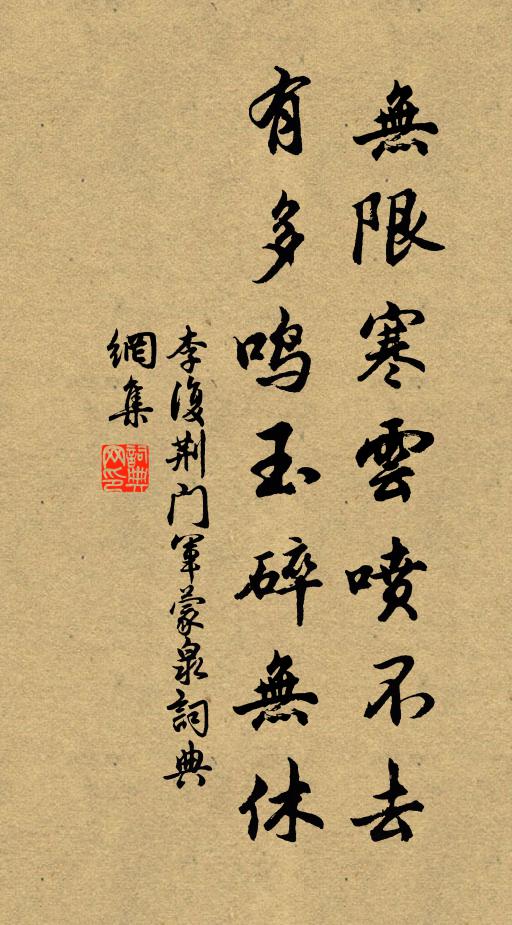 無限寒雲噴不去
有多鳴玉碎無休
李復荆門軍蒙泉詞典
網集
詞典网印